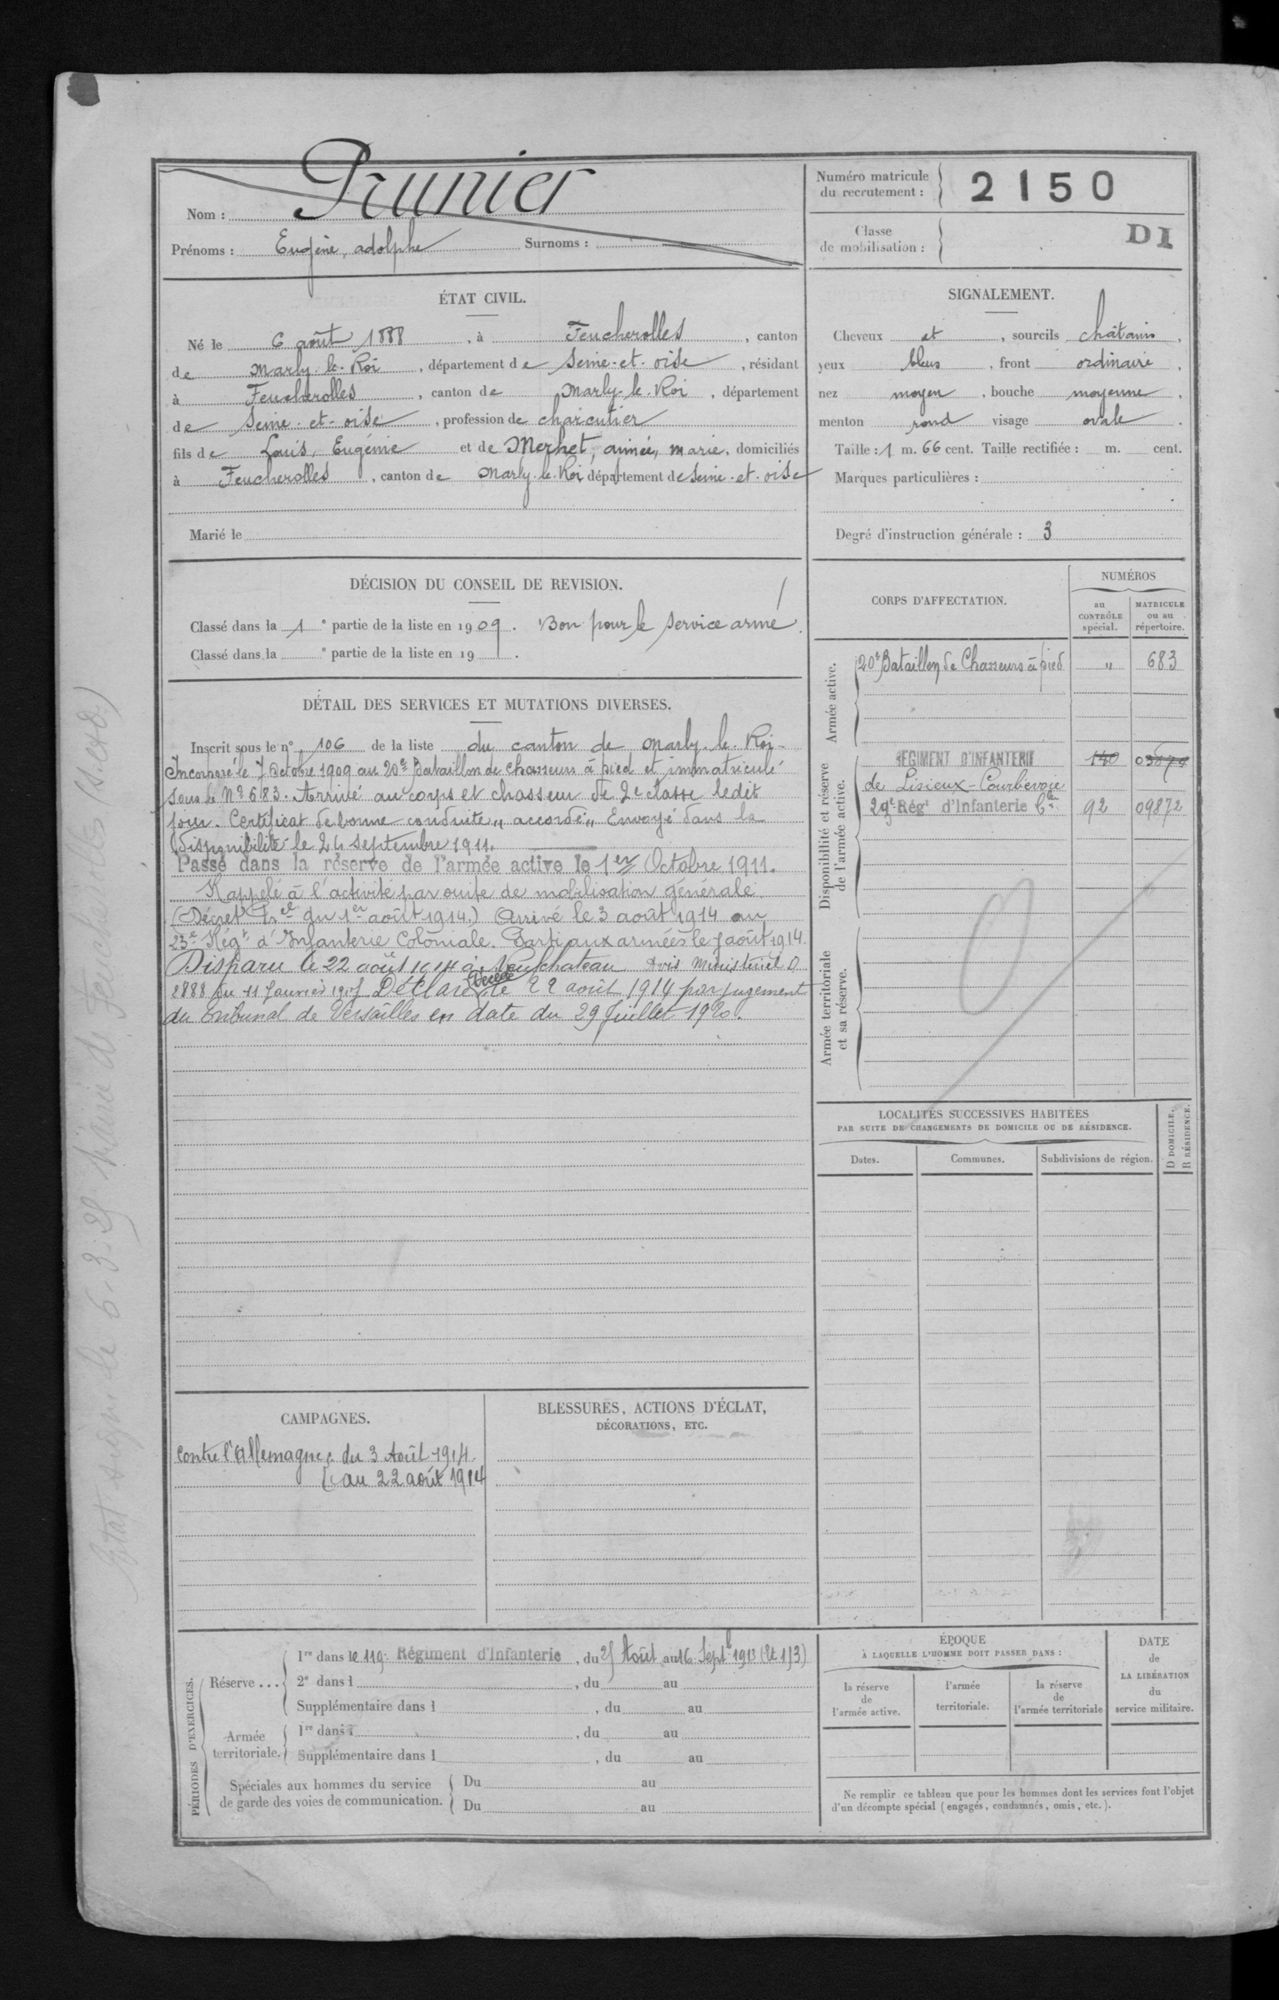 Nom : Prunier
Prénoms : Eugène, adolphe Surnoms :
Numéro matricule du recrutement : 2150
Classe de mobilisation :
DI
ÉTAT CIVIL.
Né le 6 août 1888, à Feucherolles, canton
de Marly-le-Roi, département de Seine-et-oise, résidant
à Feucherolles, canton de Marly-le-Roi, département
de Seine-et-oise, profession de charcutier
fils de Louis, Eugénie et de Merhet, aimée, marie, domiciliés
à Feucherolles, canton de Marly-le-Roi département de Seine-et-oise
Marié le
SIGNALEMENT.
Cheveux et, sourcils châtains,
yeux bleus, front ordinaire,
nez moyen, bouche moyenne,
menton rond visage ovale.
Taille : 1 m. 66 cent. Taille rectifiée : m. cent.
Marques particulières :
Degré d'instruction générale : 3
DÉCISION DU CONSEIL DE REVISION.
Classé dans la 1e partie de la liste en 1909. Bon pour le service armé.
Classé dans la e partie de la liste en 19 .
CORPS D'AFFECTATION.
NUMÉROS
au CONTRÔLE spécial.
MATRICULE ou au répertoire.
Armée active.
20e Bataillon de Chasseurs à pied " 683
Disponibilité et réserve de l'armée active.
RÉGIMENT D'INFANTERIE 140
de Lisieux-Courbevoie
23e Régt d'Infanterie Cle 92 09872
Armée territoriale et sa réserve.
DÉTAIL DES SERVICES ET MUTATIONS DIVERSES.
Inscrit sous le n° 106 de la liste du canton de Marly-le-Roi-
Incorporé le 7 Octobre 1909 au 20e Bataillon de chasseurs à pied et immatriculé
sous le No 683. Arrivé au corps et chasseur de 2e classe ledit
jour. Certificat de bonne conduite "accordé" Envoyé dans la
disponibilité le 24 septembre 1911.
Passé dans la réserve de l'armée active le 1er Octobre 1911.
Rappelé à l'activité par suite de mobilisation générale
(Décret du 1er août 1914.) Arrivé le 3 août 1914 au
23e Régt d'Infanterie Coloniale. Parti aux armées le 7 août 1914.
Disparu le 22 août 1914 à Neufchateau Avis Ministériel
du 11 Janvier Déclaré Décédé le 22 août 1914 par jugement
du tribunal de Versailles en date du 29 Juillet 1920.
LOCALITÉS SUCCESSIVES HABITÉES
PAR SUITE DE CHANGEMENTS DE DOMICILE OU DE RÉSIDENCE.
Dates. Communes. Subdivisions de région. D DOMICILE. R RÉSIDENCE.
CAMPAGNES.
Contre l'Allemagne du 3 Août 1914
au 22 août 1914
BLESSURES, ACTIONS D'ÉCLAT,
DÉCORATIONS, ETC.
PÉRIODES D'EXERCICES.
Réserve ...
1re dans le 119e Régiment d'Infanterie, du 25 Août au 16 Sept 1913
2e dans l , du au
Supplémentaire dans l , du au
Armée territoriale.
1re dans l , du au
Supplémentaire dans l , du au
Spéciales aux hommes du service
de garde des voies de communication.
Du au
Du au
ÉPOQUE
À LAQUELLE L'HOMME DOIT PASSER DANS :
la réserve de l'armée active.
l'armée territoriale.
la réserve de l'armée territoriale
DATE de LA LIBÉRATION du service militaire.
Ne remplir ce tableau que pour les hommes dont les services font l'objet
d'un décompte spécial (engagés, condamnés, omis, etc.).
Etat signalé 6.3.25 Mairie de Feucherolles (S.et O.)